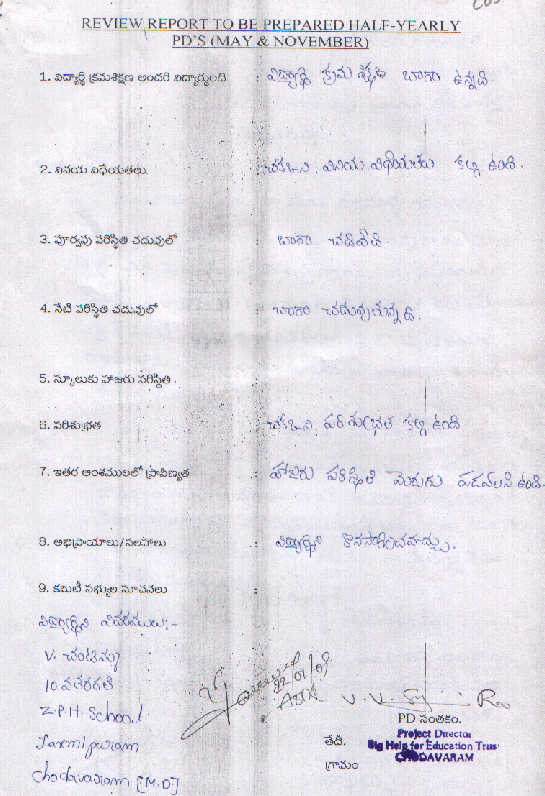 REVIEW REPORT TO BE PREPARED HALF-YEARLY
PD'S (MAY & NOVEMBER)
1. విద్యార్థి క్రమశిక్షణ అందరి విద్యార్థులతో : విద్యార్థిని క్రమ శిక్షణ బాగా ఉన్నది
2. వినయ విధేయతలు : చక్కని వినయ విధేయతలు కల్గి ఉంది.
3. పూర్వపు పరిస్థితి చదువులో : బాగా చదివేది
4. నేటి పరిస్థితి చదువులో : బాగా చదువుతున్నది.
5. స్కూలుకు హాజరు పరిస్థితి :
6. పరిశుభ్రత : చక్కని పరిశుభ్రత కల్గి ఉంది
7. ఇతర అంశములలో ప్రావీణ్యత : హాజరు పరిస్థితి మెరుగు పడవలసి ఉంది.
8. అభిప్రాయాలు/సలహాలు : విద్యార్థిని కొనసాగించవచ్చు.
9. కమిటీ సభ్యుల సూచనలు :
విద్యార్థిని వివరములు:-
V.
10వ తరగతి
Z.P.H. School
Laxmipuram
Chodavaram [M.D]
PD సంతకం.
తేది.
Project Director
Big Help for Education Trust
గ్రామం
CHODAVARAM